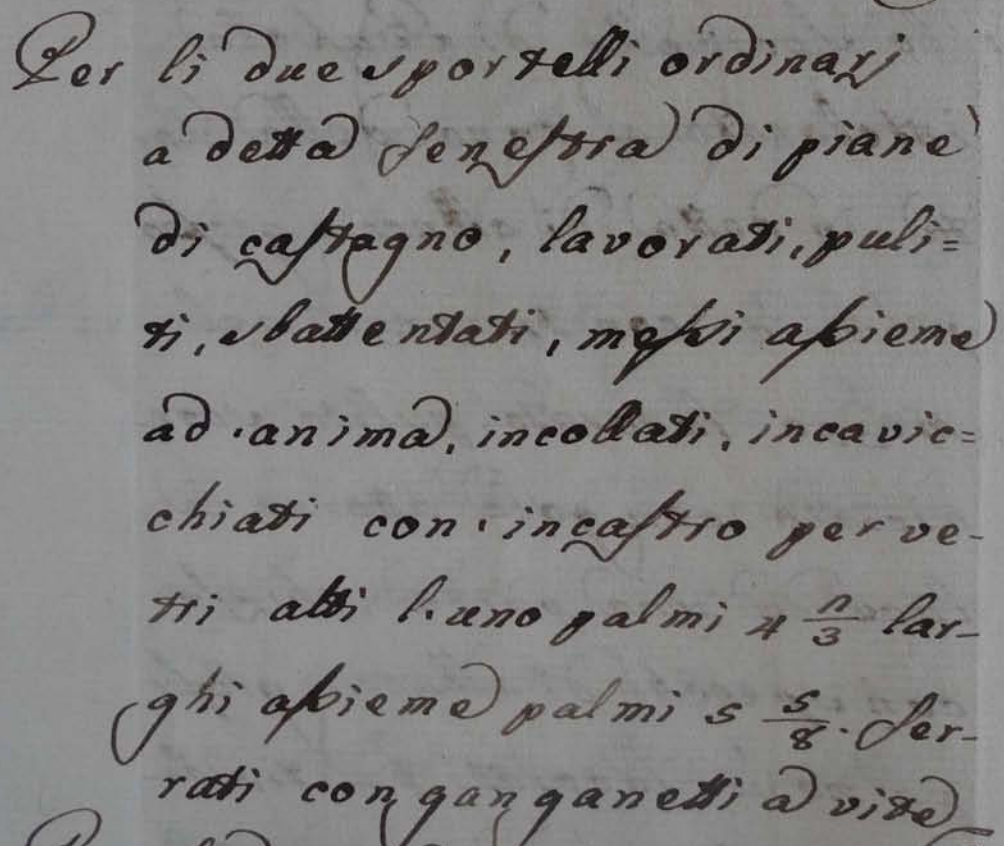 Per li due sportelli ordinarj
a detta fenestra di piane
di castagno, lavorati, puli=
ti, sbattentati, messi assieme
ad anima, incollati, incavic=
chiati con incastro per ve-
tri alti l'uno palmi 4 2/3 lar-
ghi assieme palmi 5 5/8. fer-
rati con ganganetti a vite